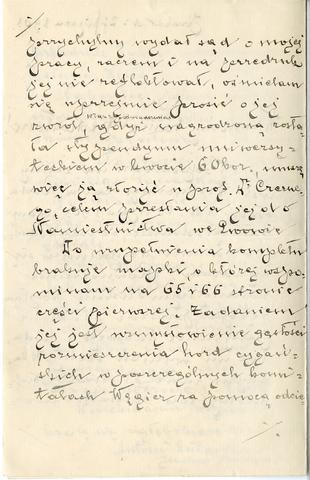 przychylny wydał sąd o mojej
pracy, raczem i na przedruk
jej nie reflektował, ośmielam
się uprzejmie prosić o jej
zwrot, gdyż nagrodzoną zosta-
ła stypendyum uniwersy-
teckiem w kwocie 60 kor, muszę
więc ją złożyć u prof. Dr Czerne-
go, celem przesłania jej do
Namiestnictwa we Lwowie
To uzupełnienia kompletu
brakuje mapki, o której wspo-
minam na 65 i 66 stronie
części pierwszej. Zadaniem
jej jest uzmysłowienie gęstości
rozmieszczenia hord cygań-
skich w poszczególnych komi-
tatach Węgier za pomocą odcie-